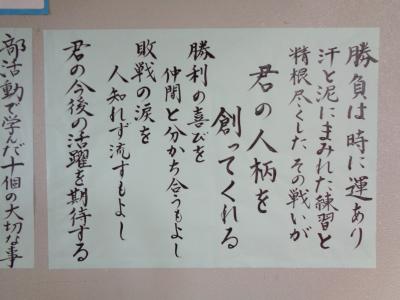 勝負は時に運あり
汗と泥にまみれた練習と
精根尽くした、その戦いが
君の人柄を
創ってくれる
勝利の喜びを
仲間と分かち合うもよし
敗戦の涙を
人知れず流すもよし
君の今後の活躍を期待する
部活動で学んだ十個の大切な事